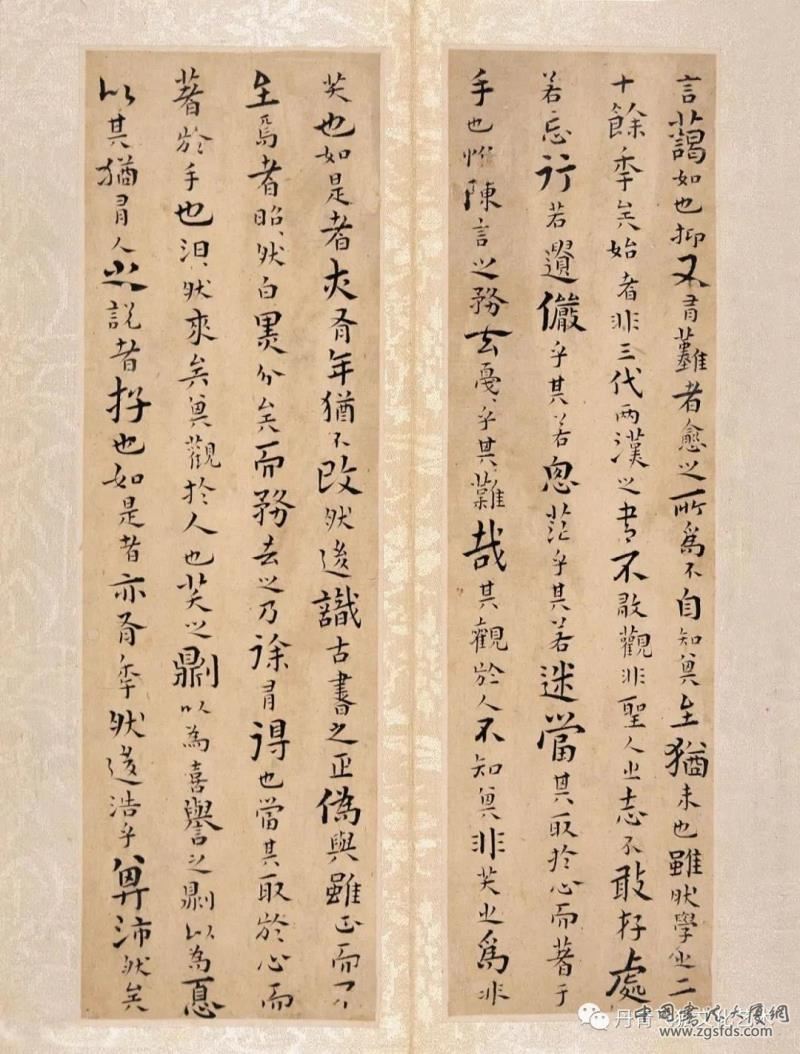 言藹如也抑又有難者愈之所爲不自知其至猶未也雖然學之二
十餘年矣始者非三代兩漢之書不敢觀非聖人之志不敢存處
若忘行若遺儼乎其若思茫乎其若迷當其取於心而著于
手也惟陳言之務去戛〻乎其難哉其觀於人不知其非笑之爲非
笑也如是者亦有年猶不改然後識古書之正偽與雖正而不
至焉者昭〻然白黑分矣而務去之乃徐有得也當其取於心而
著於手也汩〻然來矣其觀於人也笑之則以為喜譽之則以為憂
以其猶有人之說者存也如是者亦有年然後浩乎其沛然矣
丹青
中国書法大厦網
www.zgsfds.com